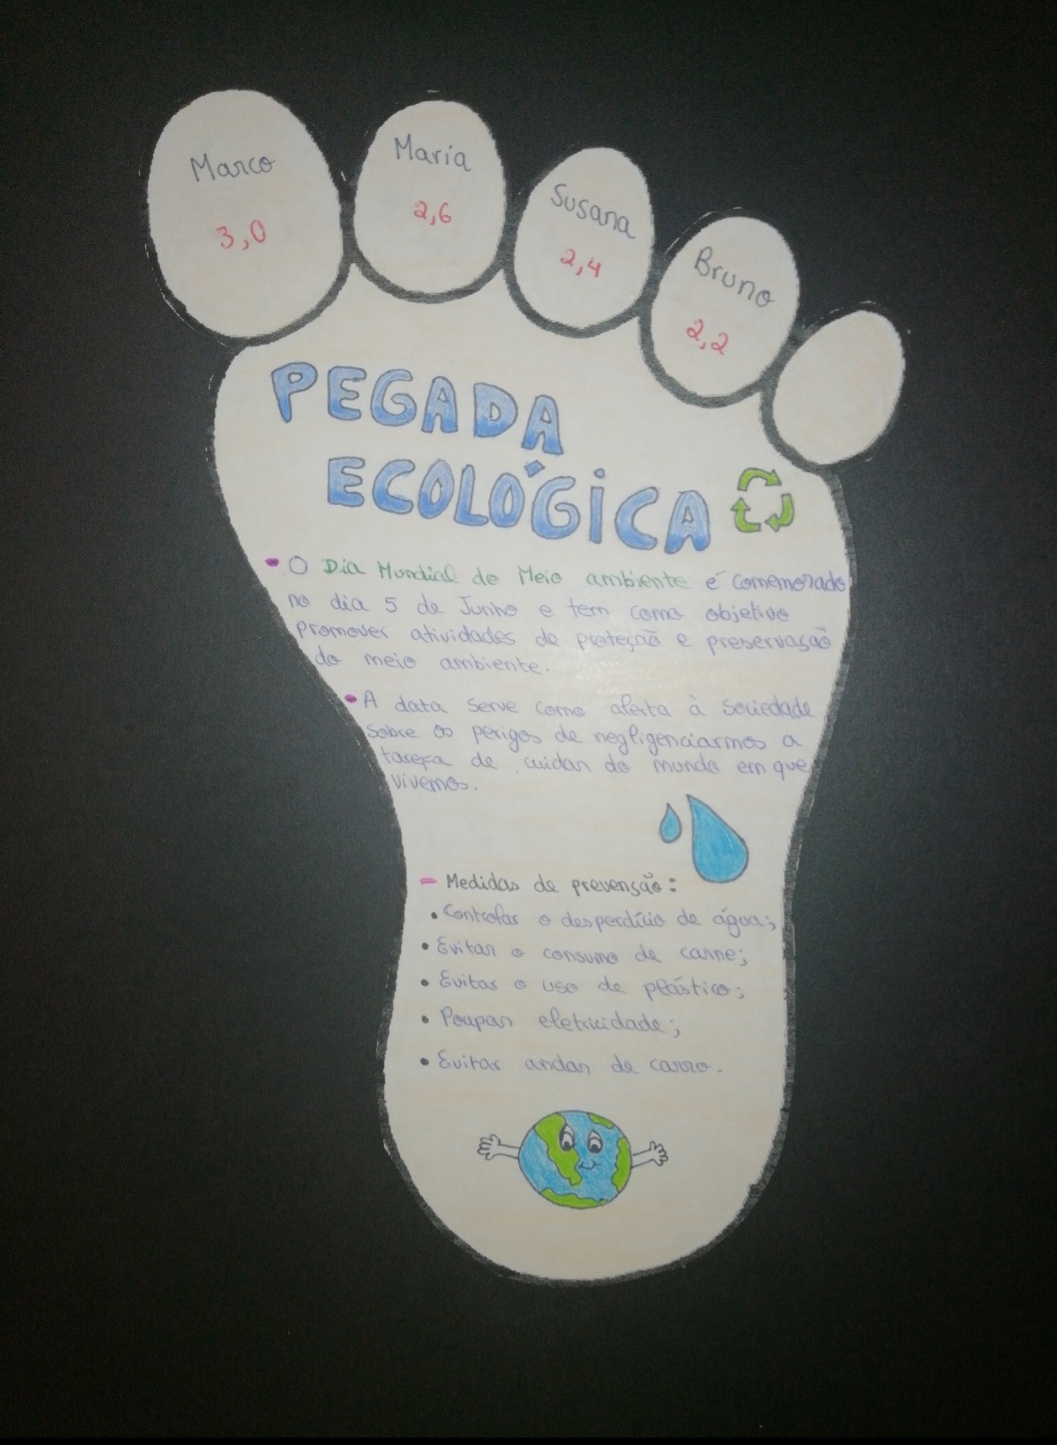 Marco
3,0
Maria
2,6
Susana
2,4
Bruno
2,2
PEGADA
ECOLÓGICA
- O Dia Mundial do Meio ambiente é comemorado
no dia 5 de Junho e tem como objetivo
promover atividades de proteção e preservação
do meio ambiente.
• A data serve como alerta à sociedade
sobre os perigos de negligenciarmos a
tarefa de cuidar do mundo em que
vivemos.
- Medidas de prevenção:
• Controlar o desperdício de água;
• Evitar o consumo de carne;
• Evitar o uso de plástico;
• Poupar eletricidade;
• Evitar andar de carro.